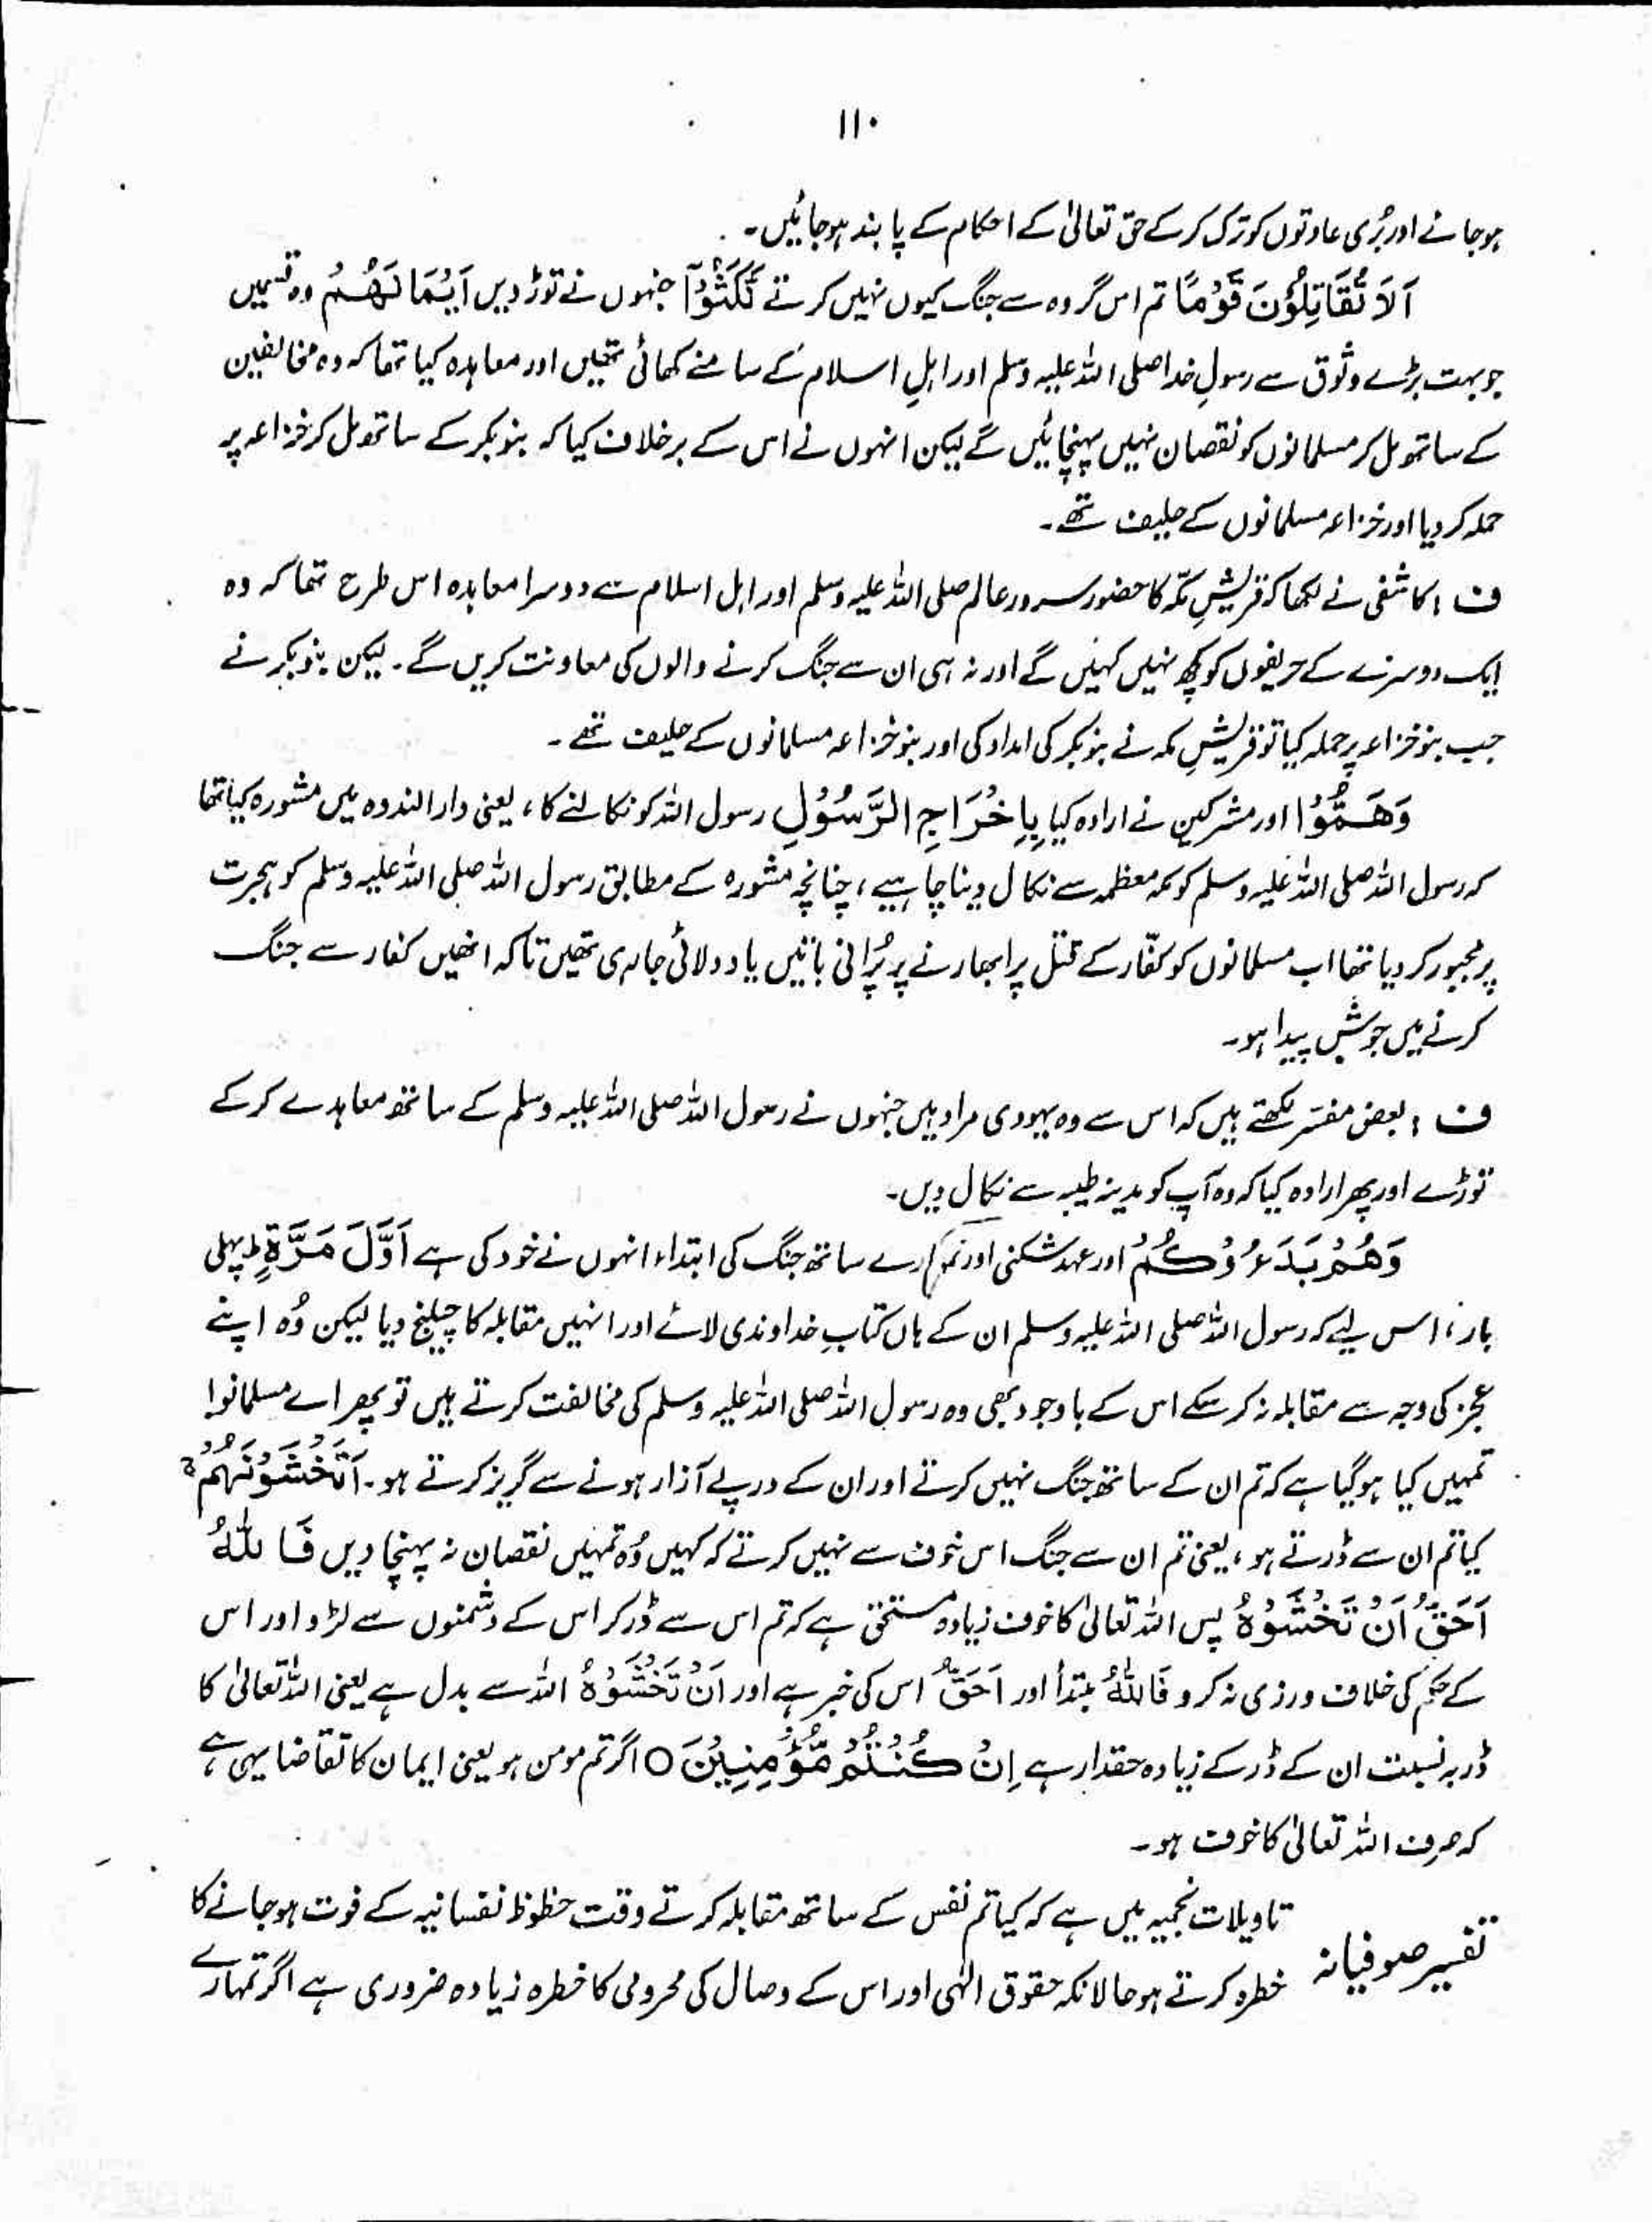 ۱۱۰
ہوجانے اور بُری عادتوں کو ترک کرکے حق تعالیٰ کے احکام کے پابند ہوجائیں۔
اَلَا تُقَاتِلُوْنَ قَوْمًا تم اس گروہ سے جنگ کیوں نہیں کرتے نَّكَثُوْٓا جنہوں نے توڑ دیں اَيْمَانَهُمْ وہ قسمیں
جو بہت بڑے وثوق سے رسولِ خدا صلی اللہ علیہ وسلم اور اہلِ اسلام کے سامنے کھائی تھیں اور معاہدہ کیا تھا کہ وہ مخالفین
کے ساتھ مل کر مسلمانوں کو نقصان نہیں پہنچائیں گے لیکن انہوں نے اس کے برخلاف کیا کہ بنو بکر کے ساتھ مل کر خزاعہ پر
حملہ کر دیا اور خزاعہ مسلمانوں کے حلیف تھے۔
ف : کاشفی نے لکھا کہ قریشِ مکّہ کا حضور سرور عالم صلی اللہ علیہ وسلم اور اہل اسلام سے دوسرا معاہدہ اس طرح تھا کہ وہ
ایک دوسرے کے حریفوں کو کچھ نہیں کہیں گے اور نہ ہی ان سے جنگ کرنے والوں کی معاونت کریں گے۔ لیکن بنو بکر نے
جب بنو خزاعہ پر حملہ کیا تو قریشِ مکہ نے بنو بکر کی امداد کی اور بنو خزاعہ مسلمانوں کے حلیف تھے۔
وَهَمُّوْا اور مشرکین نے ارادہ کیا بِاِخْرَاجِ الرَّسُوْلِ رسول اللہ کو نکالنے کا، یعنی دار الندوہ میں مشورہ کیا تھا
کہ رسول اللہ صلی اللہ علیہ وسلم کو مکہ معظمہ سے نکال دینا چاہیے، چنانچہ مشورہ کے مطابق رسول اللہ صلی اللہ علیہ وسلم کو ہجرت
پر مجبور کر دیا تھا اب مسلمانوں کو کفّار کے قتل پر ابھارنے پر پُرانی باتیں یاد دلائی جا رہی تھیں تاکہ انھیں کفار سے جنگ
کرنے میں جوش پیدا ہو۔
ف : بعض مفسّر لکھتے ہیں کہ اس سے وہ یہودی مراد ہیں جنہوں نے رسول اللہ صلی اللہ علیہ وسلم کے ساتھ معاہدے کرکے
توڑے اور پھر ارادہ کیا کہ وہ آپ کو مدینہ طیبہ سے نکال دیں۔
وَهُمْ بَدَءُوْكُمْ اور عہد شکنی اور تمہارے ساتھ جنگ کی ابتداء انہوں نے خود کی ہے اَوَّلَ مَرَّةٍ ؕ پہلی
بار، اس لیے کہ رسول اللہ صلی اللہ علیہ وسلم ان کے ہاں کتابِ خداوندی لائے اور انہیں مقابلہ کا چیلنج دیا لیکن وُہ اپنے
عجز کی وجہ سے مقابلہ نہ کرسکے اس کے باوجود بھی وہ رسول اللہ صلی اللہ علیہ وسلم کی مخالفت کرتے ہیں تو پھر اے مسلمانو!
تمہیں کیا ہوگیا ہے کہ تم ان کے ساتھ جنگ نہیں کرتے اور ان کے درپے آزار ہونے سے گریز کرتے ہو۔ اَتَخْشَوْنَهُمْ ۚ
کیا تم ان سے ڈرتے ہو، یعنی تم ان سے جنگ اس خوف سے نہیں کرتے کہ کہیں وُہ تمہیں نقصان نہ پہنچا دیں فَاللّٰهُ
اَحَقُّ اَنْ تَخْشَوْهُ پس اللہ تعالیٰ کا خوف زیادہ مستحق ہے کہ تم اس سے ڈر کر اس کے دشمنوں سے لڑو اور اس
کے حکم کی خلاف ورزی نہ کرو فَاللّٰهُ مبتدأ اور اَحَقُّ اس کی خبر ہے اور اَنْ تَخْشَوْهُ اللہ سے بدل ہے یعنی اللہ تعالیٰ کا
ڈر بہ نسبت ان کے ڈر کے زیادہ حقدار ہے اِنْ كُنْتُمْ مُّؤْمِنِيْنَ ○ اگر تم مومن ہو یعنی ایمان کا تقاضا یہی ہے
کہ صرف اللہ تعالیٰ کا خوف ہو۔
تفسیر صوفیانہ تاویلات نجمیہ میں ہے کہ کیا تم نفس کے ساتھ مقابلہ کرتے وقت حظوظ نفسانیہ کے فوت ہوجانے کا
خطرہ کرتے ہو حالانکہ حقوق الٰہی اور اس کے وصال کی محرومی کا خطرہ زیادہ ضروری ہے اگر تمہارے